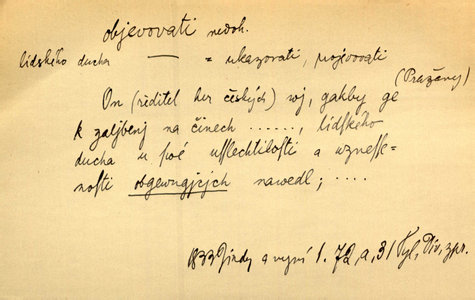 objevovati nedok.
lidského ducha — = ukazovati, projevovati
(Pražany)
On (ředitel her českých) wj, gakby ge
k zaljbenj na činech ......, lidského
ducha w swé usslechtilosti a wznesse-
nosti obgewugjcých nawedl; ....
1833 Jindy a nyní 1. 72, a, 31 Tyl, Div, zpr.